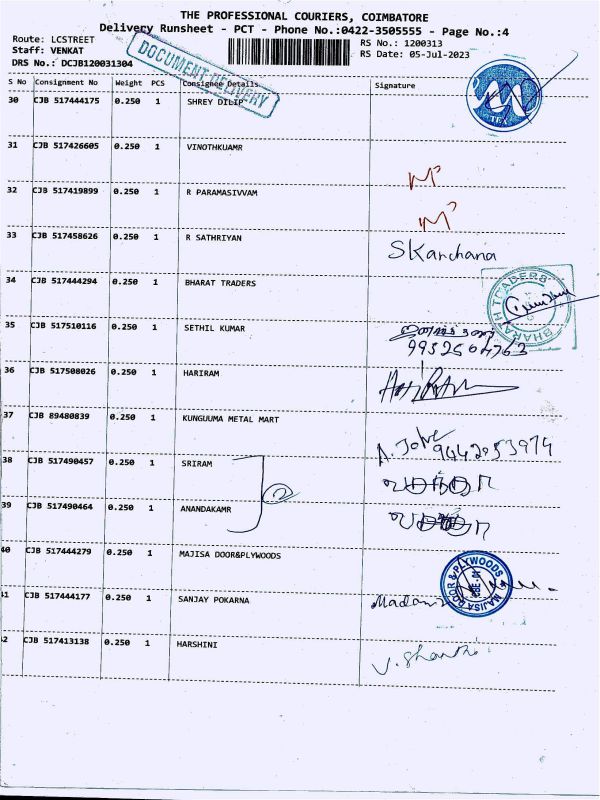 THE PROFESSIONAL COURIERS, COIMBATORE
Delivery Runsheet - PCT - Phone No.:0422-3505555 - Page No.:4
Route: LCSTREET
RS No.: 1200313
Staff: VENKAT
RS Date: 05-Jul-2023
DRS No.: DCJB120031304
DOCUMENT DELIVERY
S No Consignment No Weight PCS Consignee Details Signature
30 CJB 517444175 0.250 1 SHREY DILIP
31 CJB 517426605 0.250 1 VINOTHKUAMR
32 CJB 517419899 0.250 1 R PARAMASIVVAM
33 CJB 517458626 0.250 1 R SATHRIYAN S Kanchana
34 CJB 517444294 0.250 1 BHARAT TRADERS BHARATH TRADERS
35 CJB 517510116 0.250 1 SETHIL KUMAR
9952504763
36 CJB 517508026 0.250 1 HARIRAM
37 CJB 89480839 0.250 1 KUNGUUMA METAL MART 9442053974
38 CJB 517490457 0.250 1 SRIRAM
2
39 CJB 517490464 0.250 1 ANANDAKAMR
40 CJB 517444279 0.250 1 MAJISA DOOR&PLYWOODS MAJISA DOOR & PLYWOODS CBE-01
41 CJB 517444177 0.250 1 SANJAY POKARNA Madan
42 CJB 517413138 0.250 1 HARSHINI V. Shanthi